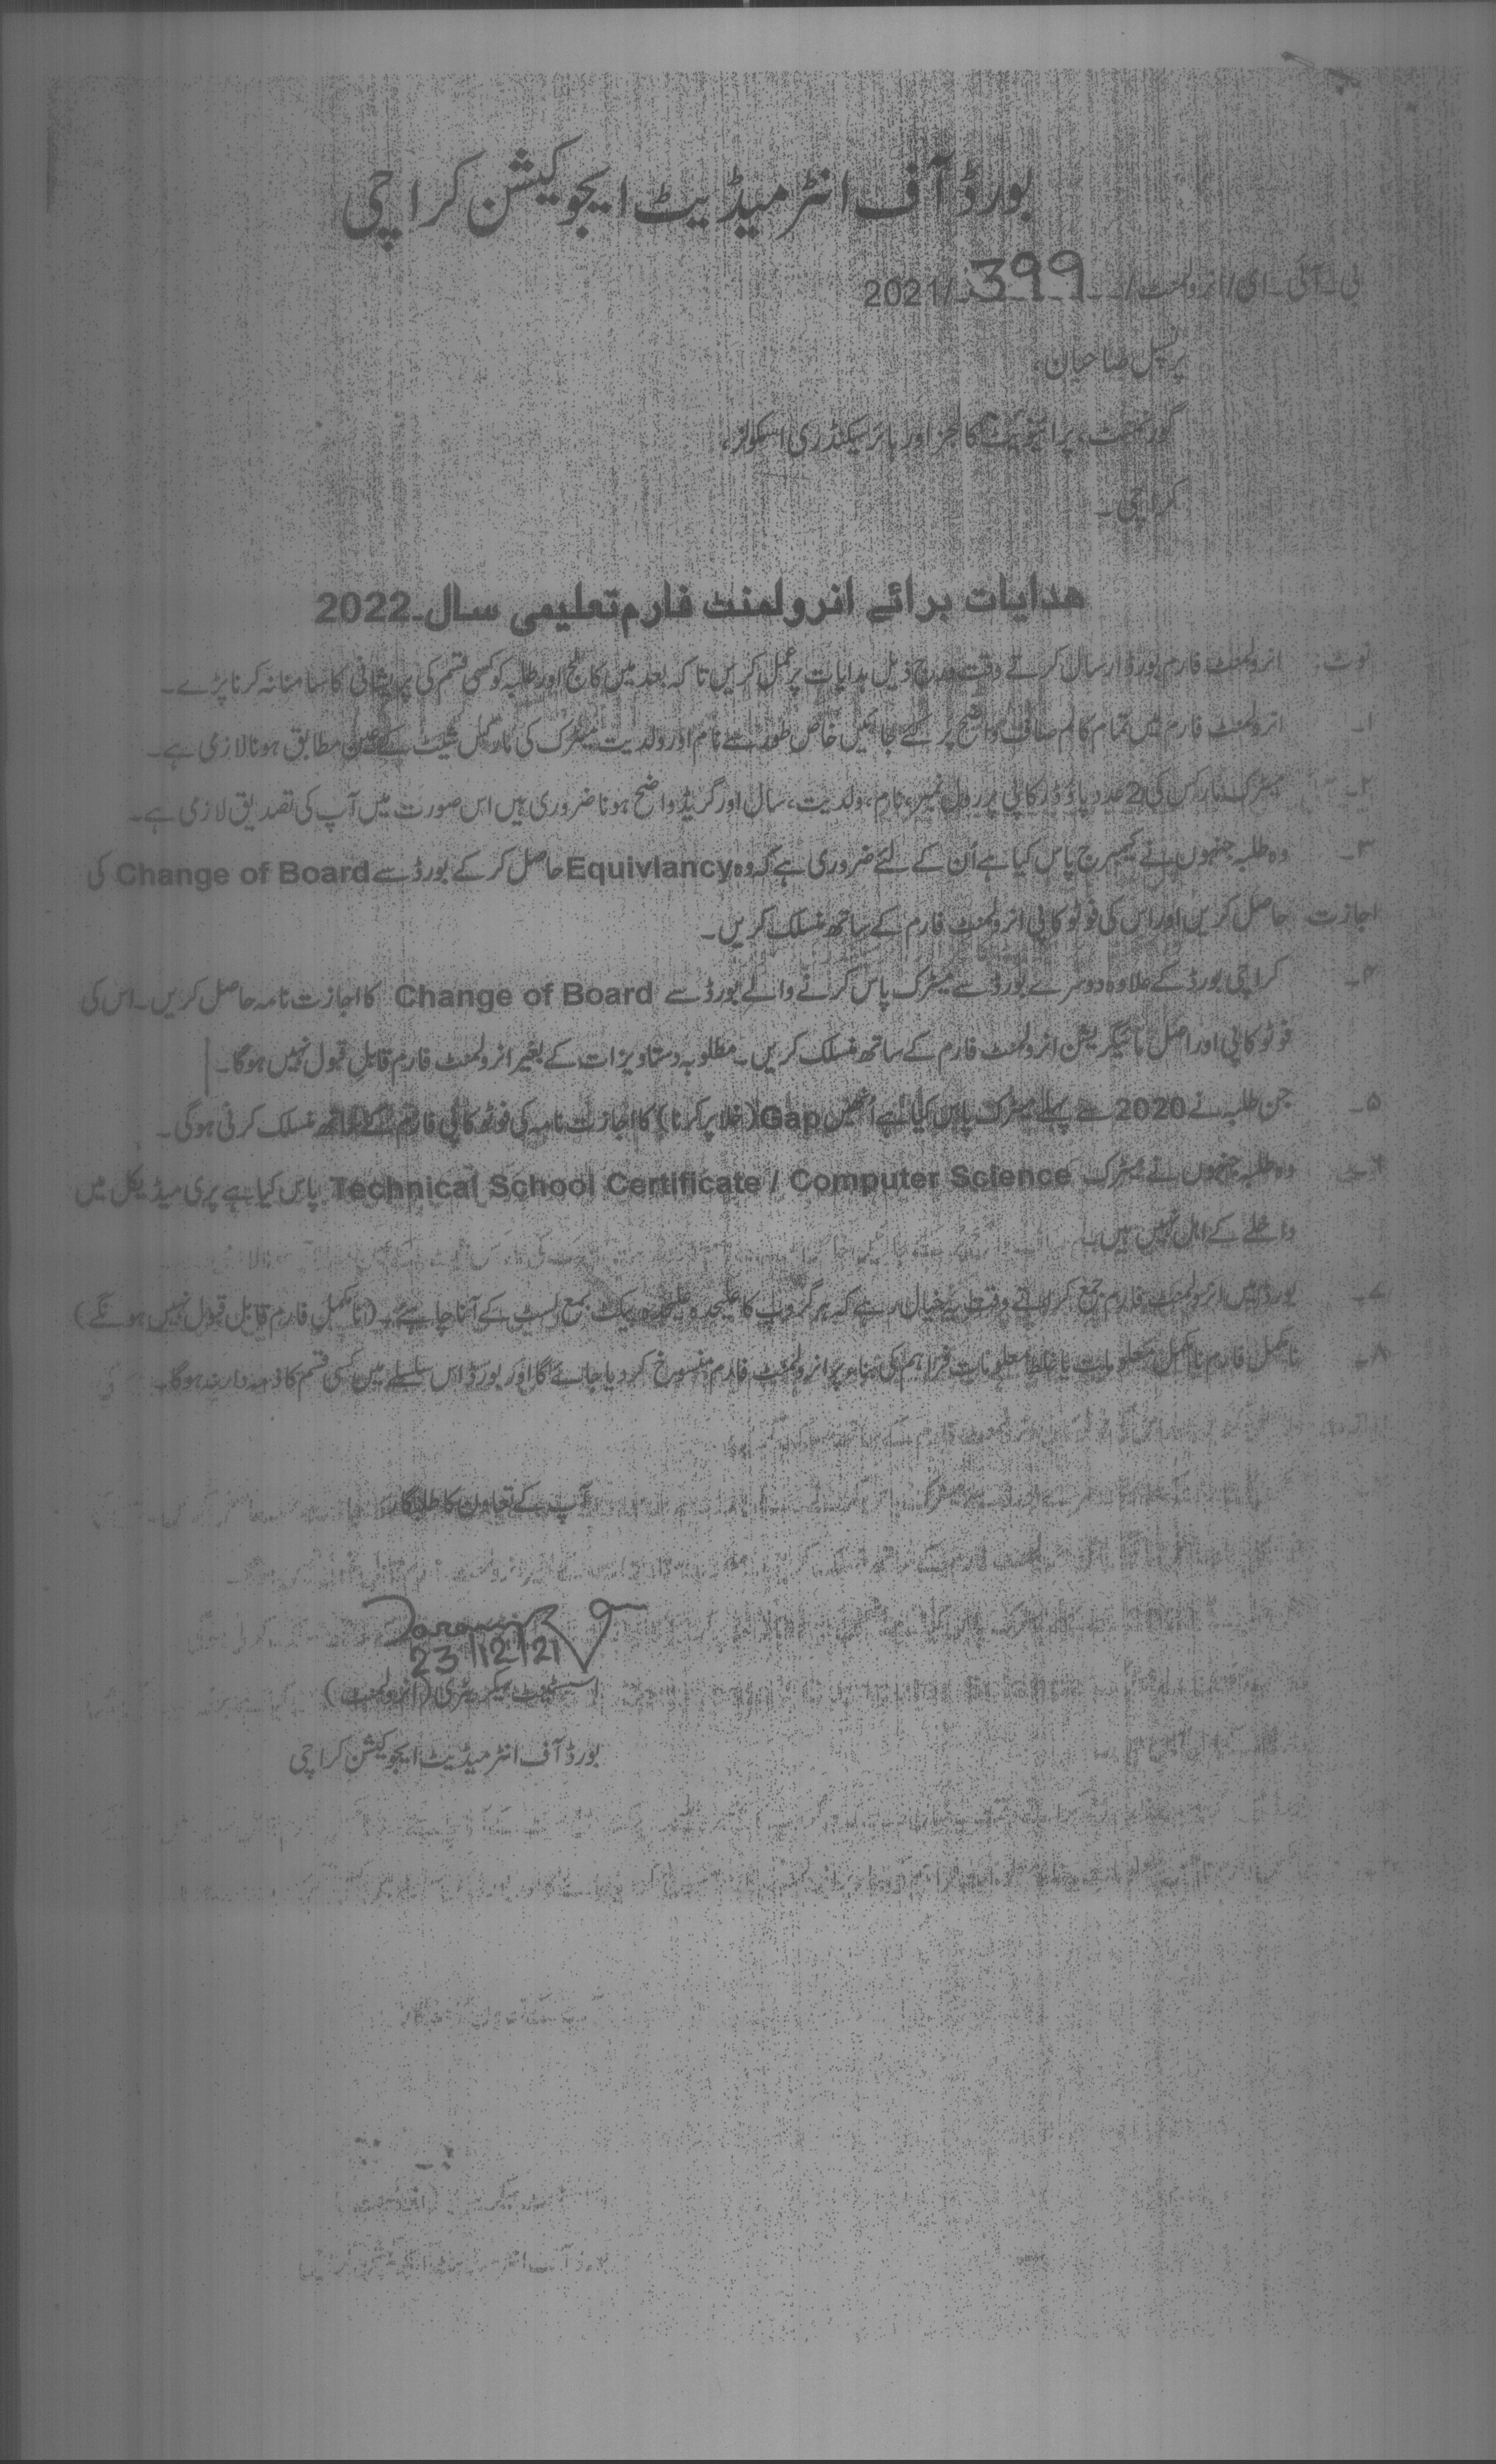 بورڈ آف انٹرمیڈیٹ ایجوکیشن کراچی
بی۔آئی۔ای/انرولمنٹ/399/2021
پرنسپل صاحبان،
گورنمنٹ، پرائیویٹ کالجز اور ہائر سیکنڈری اسکولز،
کراچی۔
ھدایات برائے انرولمنٹ فارم تعلیمی سال۔2022
نوٹ: انرولمنٹ فارم بورڈ ارسال کرتے وقت مندرج ذیل ہدایات پر عمل کریں تاکہ بعد میں کالج اور طلبہ کو کسی قسم کی پریشانی کا سامنا نہ کرنا پڑے۔
۱۔ انرولمنٹ فارم میں تمام کالم صاف واضح پر کئے جائیں خاص طور سے نام اور ولدیت میٹرک کی مارکس شیٹ کے عین مطابق ہونا لازمی ہے۔
۲۔ میٹرک مارکس کی 2 عدد پاؤڈر کاپی پر رول نمبر، نام، ولدیت، سال اور گریڈ واضح ہونا ضروری ہیں اس صورت میں آپ کی تصدیق لازمی ہے۔
۳۔ وہ طلبہ جنہوں نے کیمبرج پاس کیا ہے اُن کے لئے ضروری ہے کہ وہ Equivlancy حاصل کر کے بورڈ سے Change of Board کی
اجازت حاصل کریں اور اس کی فوٹو کاپی انرولمنٹ فارم کے ساتھ منسلک کریں۔
۴۔ کراچی بورڈ کے علاوہ دوسرے بورڈ سے میٹرک پاس کرنے والے بورڈ سے Change of Board کا اجازت نامہ حاصل کریں۔ اس کی
فوٹو کاپی اور اصل مائیگریشن انرولمنٹ فارم کے ساتھ منسلک کریں۔ مطلوبہ دستاویزات کے بغیر انرولمنٹ فارم قابلِ قبول نہیں ہوگا۔
۵۔ جن طلبہ نے 2020 سے پہلے میٹرک پاس کیا ہے اُنھیں Gap (خلا پر کرنا) کا اجازت نامہ کی فوٹو کاپی فارم کے ساتھ منسلک کرنی ہوگی۔
۶۔ وہ طلبہ جنہوں نے میٹرک Technical School Certificate / Computer Science پاس کیا ہے پری میڈیکل میں
داخلے کے اہل نہیں ہیں۔
۷۔ بورڈ میں انرولمنٹ فارم جمع کراتے وقت یہ خیال رہے کہ ہر گروپ کا علیحدہ علیحدہ پیکٹ بمع لسٹ کے آنا چاہیے۔ (نامکمل فارم قابل قبول نہیں ہونگے)
۸۔ نامکمل فارم نامکمل معلومات یا غلط معلومات فراہم کی بناء پر انرولمنٹ فارم منسوخ کر دیا جائے گا اور بورڈ اس سلسلے میں کسی قسم کا ذمہ دار نہ ہوگا۔
آپ کے تعاون کا طلبگار
23/12/21
اسسٹنٹ سیکریٹری (انرولمنٹ)
بورڈ آف انٹرمیڈیٹ ایجوکیشن کراچی